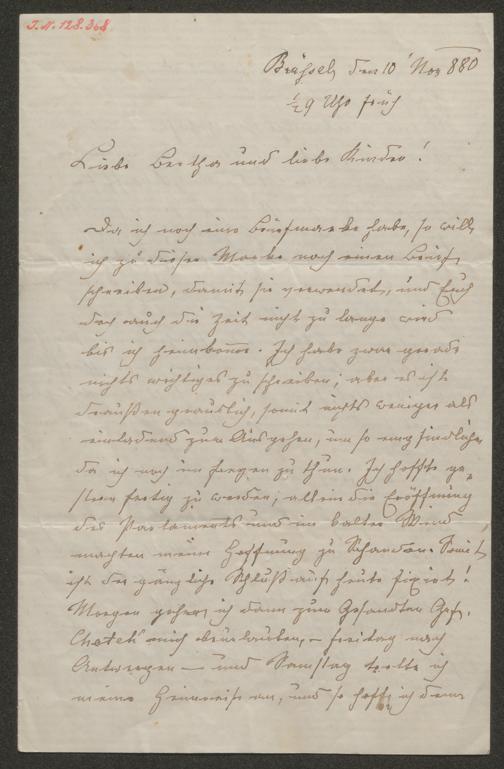 I.N. 128.368
Brüssel, den 10 Nov 880
½ 9 Uhr früh
Liebe Bertha und liebe Kinder!
Da ich noch eine Briefmarke habe, so will
ich zu dieser Marke noch einen Brief
schreiben, damit sie verwendet, und Euch
doch auch die Zeit nicht zu lange wird
bis ich heimkomme. Ich habe zwar gerade
nichts wichtiges zu schreiben; aber es ist
draußen grauslich, somit nichts weniger als
einladend zum Ausgehen, um so empfindlicher
da ich noch im freyen zu thun. Ich hoffte ge-
stern fertig zu werden; allein die Eröffnung
des Parlaments und ein kalter Wind,
machten meine Hoffnung zu Schanden. Somit
ist der gänzliche Schluß auf heute fixirt!
Morgen gehe ich dann zum Gesandten Grf.
Chotek mich beurlauben, – Freitag nach
Antwerpen – und Samstag trette ich
meine Heimreise an, und so hoffe ich denn